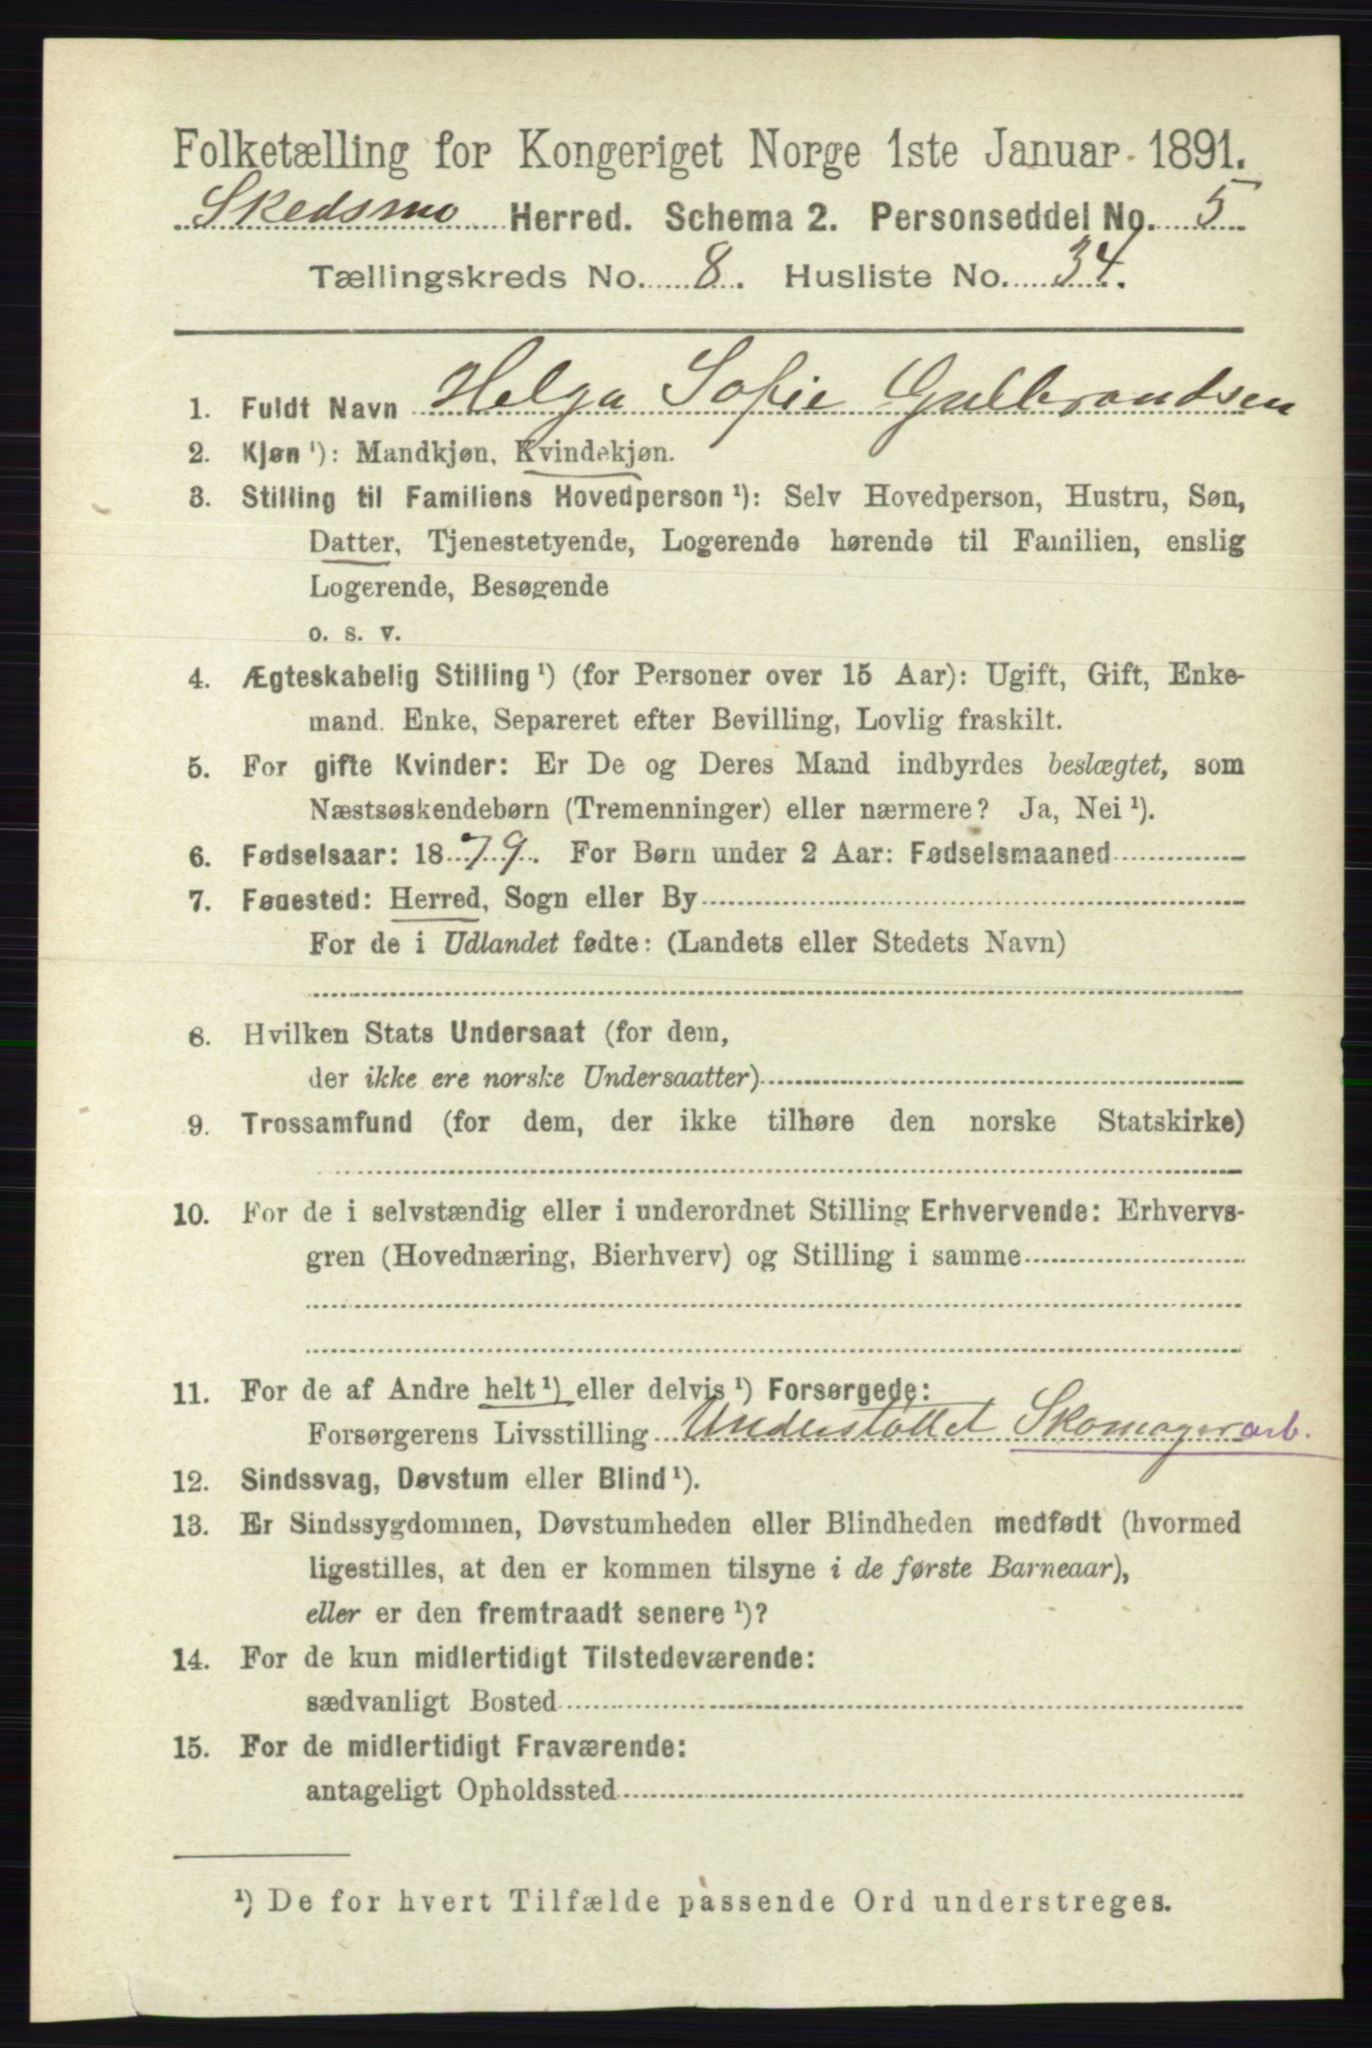 Folketælling for Kongeriget Norge 1ste Januar 1891.
Skedsmo Herred. Schema 2. Personseddel No. 5
Tællingskreds No. 8. Husliste No. 34.
1. Fuldt Navn Helga Sofie Gulbrandsen
2. Kjøn ¹): Mandkjøn, Kvindekjøn.
3. Stilling til Familiens Hovedperson ¹): Selv Hovedperson, Hustru, Søn,
Datter, Tjenestetyende, Logerende hørende til Familien, enslig
Logerende, Besøgende
o. s. v.
4. Ægteskabelig Stilling ¹) (for Personer over 15 Aar): Ugift, Gift, Enke-
mand. Enke, Separeret efter Bevilling, Lovlig fraskilt.
5. For gifte Kvinder: Er De og Deres Mand indbyrdes beslægtet, som
Næstsøskendebørn (Tremenninger) eller nærmere? Ja, Nei ¹).
6. Fødselsaar: 1879. For Børn under 2 Aar: Fødselsmaaned
7. Fødested: Herred, Sogn eller By
For de i Udlandet fødte: (Landets eller Stedets Navn)
8. Hvilken Stats Undersaat (for dem,
der ikke ere norske Undersaatter)
9. Trossamfund (for dem, der ikke tilhøre den norske Statskirke)
10. For de i selvstændig eller i underordnet Stilling Erhvervende: Erhvervs-
gren (Hovednæring, Bierhverv) og Stilling i samme
11. For de af Andre helt ¹) eller delvis ¹) Forsørgede:
Forsørgerens Livsstilling Understøttet Skomagerarb.
12. Sindssvag, Døvstum eller Blind ¹).
13. Er Sindssygdommen, Døvstumheden eller Blindheden medfødt (hvormed
ligestilles, at den er kommen tilsyne i de første Barneaar),
eller er den fremtraadt senere ¹)?
14. For de kun midlertidigt Tilstedeværende:
sædvanligt Bosted
15. For de midlertidigt Fraværende:
antageligt Opholdssted
¹) De for hvert Tilfælde passende Ord understreges.